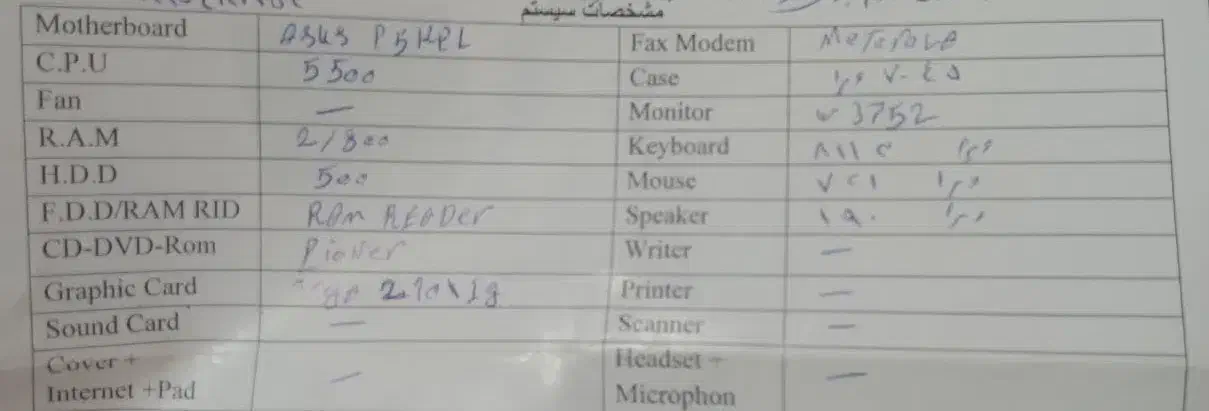 مشخصات سیستم
Motherboard ASUS P5KPL Fax Modem Motorola
C.P.U 5500 Case ۷۰۴۵ فرا
Fan — Monitor 3752
R.A.M 2/800 Keyboard فرا
H.D.D 500 Mouse فرا
F.D.D/RAM RID RAm READer Speaker ۱۹۰ فرا
CD-DVD-Rom Pioner Writer —
Graphic Card 1g Printer —
Sound Card — Scanner —
Cover + Headset +
Internet +Pad — Microphon —